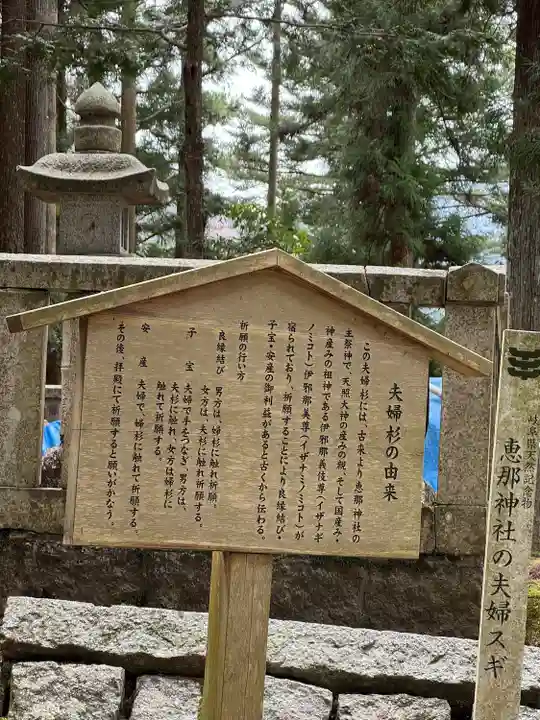 夫婦杉の由来
この夫婦杉には、古来より恵那神社の
主祭神で、天照大神の産みの親、そして国産み・
神産みの祖神である伊邪那義尊(イザナギ
ノミコト)伊邪那美尊(イザナミノミコト)が
宿られており、祈願することにより良縁結び・
子宝・安産の御利益があると古くから伝わる。
祈願の行い方
良縁結び 男方は婦杉に触れ祈願。
女方は、夫杉に触れ祈願する。
子宝 夫婦で手をつなぎ、男方は、
夫杉に触れ、女方は婦杉に
触れて祈願する。
安産 夫婦で、婦杉に触れて祈願する。
その後、拝殿にて祈願すると願いがかなう。
岐阜県天然記念物
恵那神社の夫婦スギ